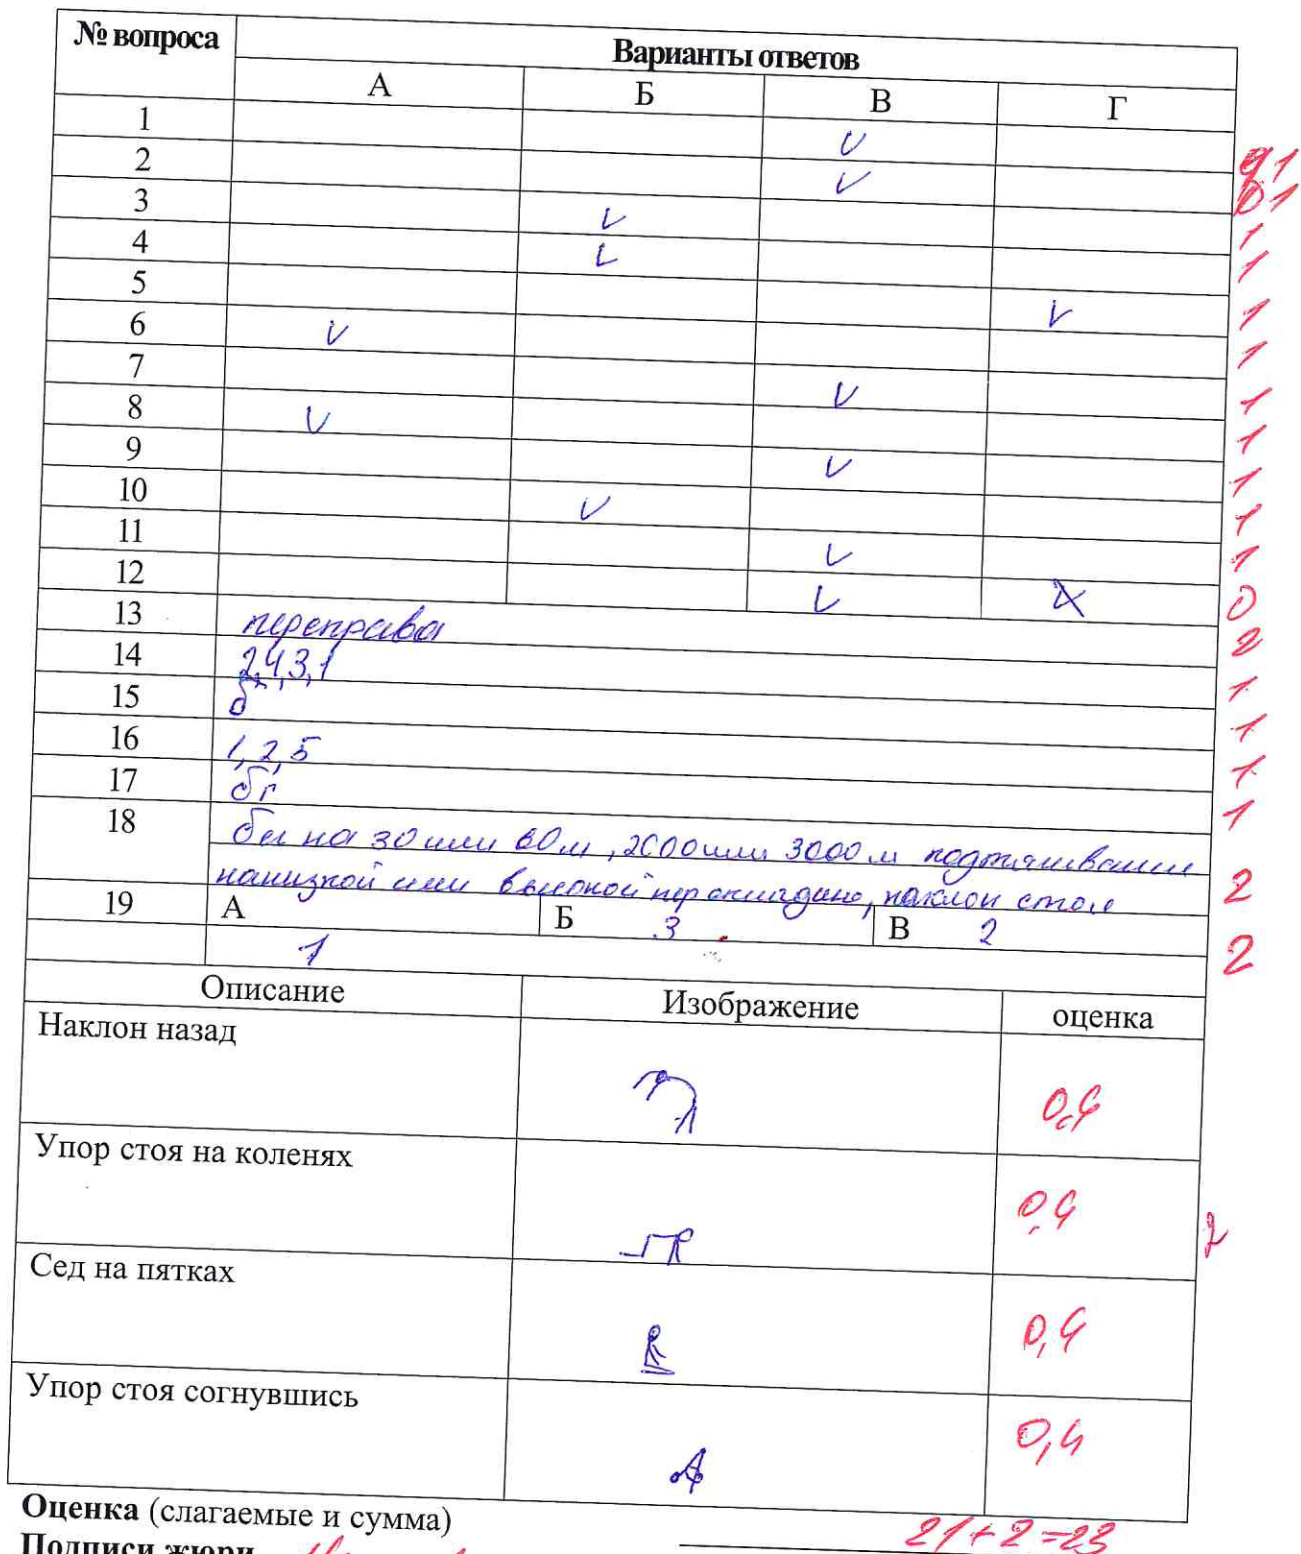 № вопроса Варианты ответов
А Б В Г
1 V
2 V 1
3 V 1
4 V 1
5 V 1
6 V 1
7 V 1
8 V 1
9 V 1
10 V 1
11 V 1
12 V 0
13 переправа 2
14 2,4,3,1 1
15 б 1
16 1,2,5 1
17 бг 1
18 бег на 30 или 60м, 2000 или 3000 м подтягивание
на низкой или высокой перекладине, наклон стоя 2
19 А Б 3 В 2
1 2
Описание Изображение оценка
Наклон назад 0,4
Упор стоя на коленях 0,4
2
Сед на пятках 0,4
Упор стоя согнувшись 0,4
Оценка (слагаемые и сумма) 21+2=23
Подписи жюри